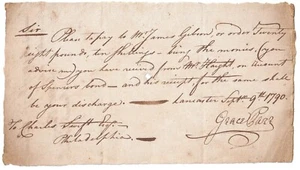 Sir
Please to pay to Mr. James Gibson or order Twenty
Eight pounds, ten shillings – being the monies, (you
advise me) you have received from Mr. Haight, on Account
of bond – and his receipt for the same shall
be your discharge. — Lancaster Septr. 9th. 1790.
To Charles Swift Esqr.
Philadelphia.